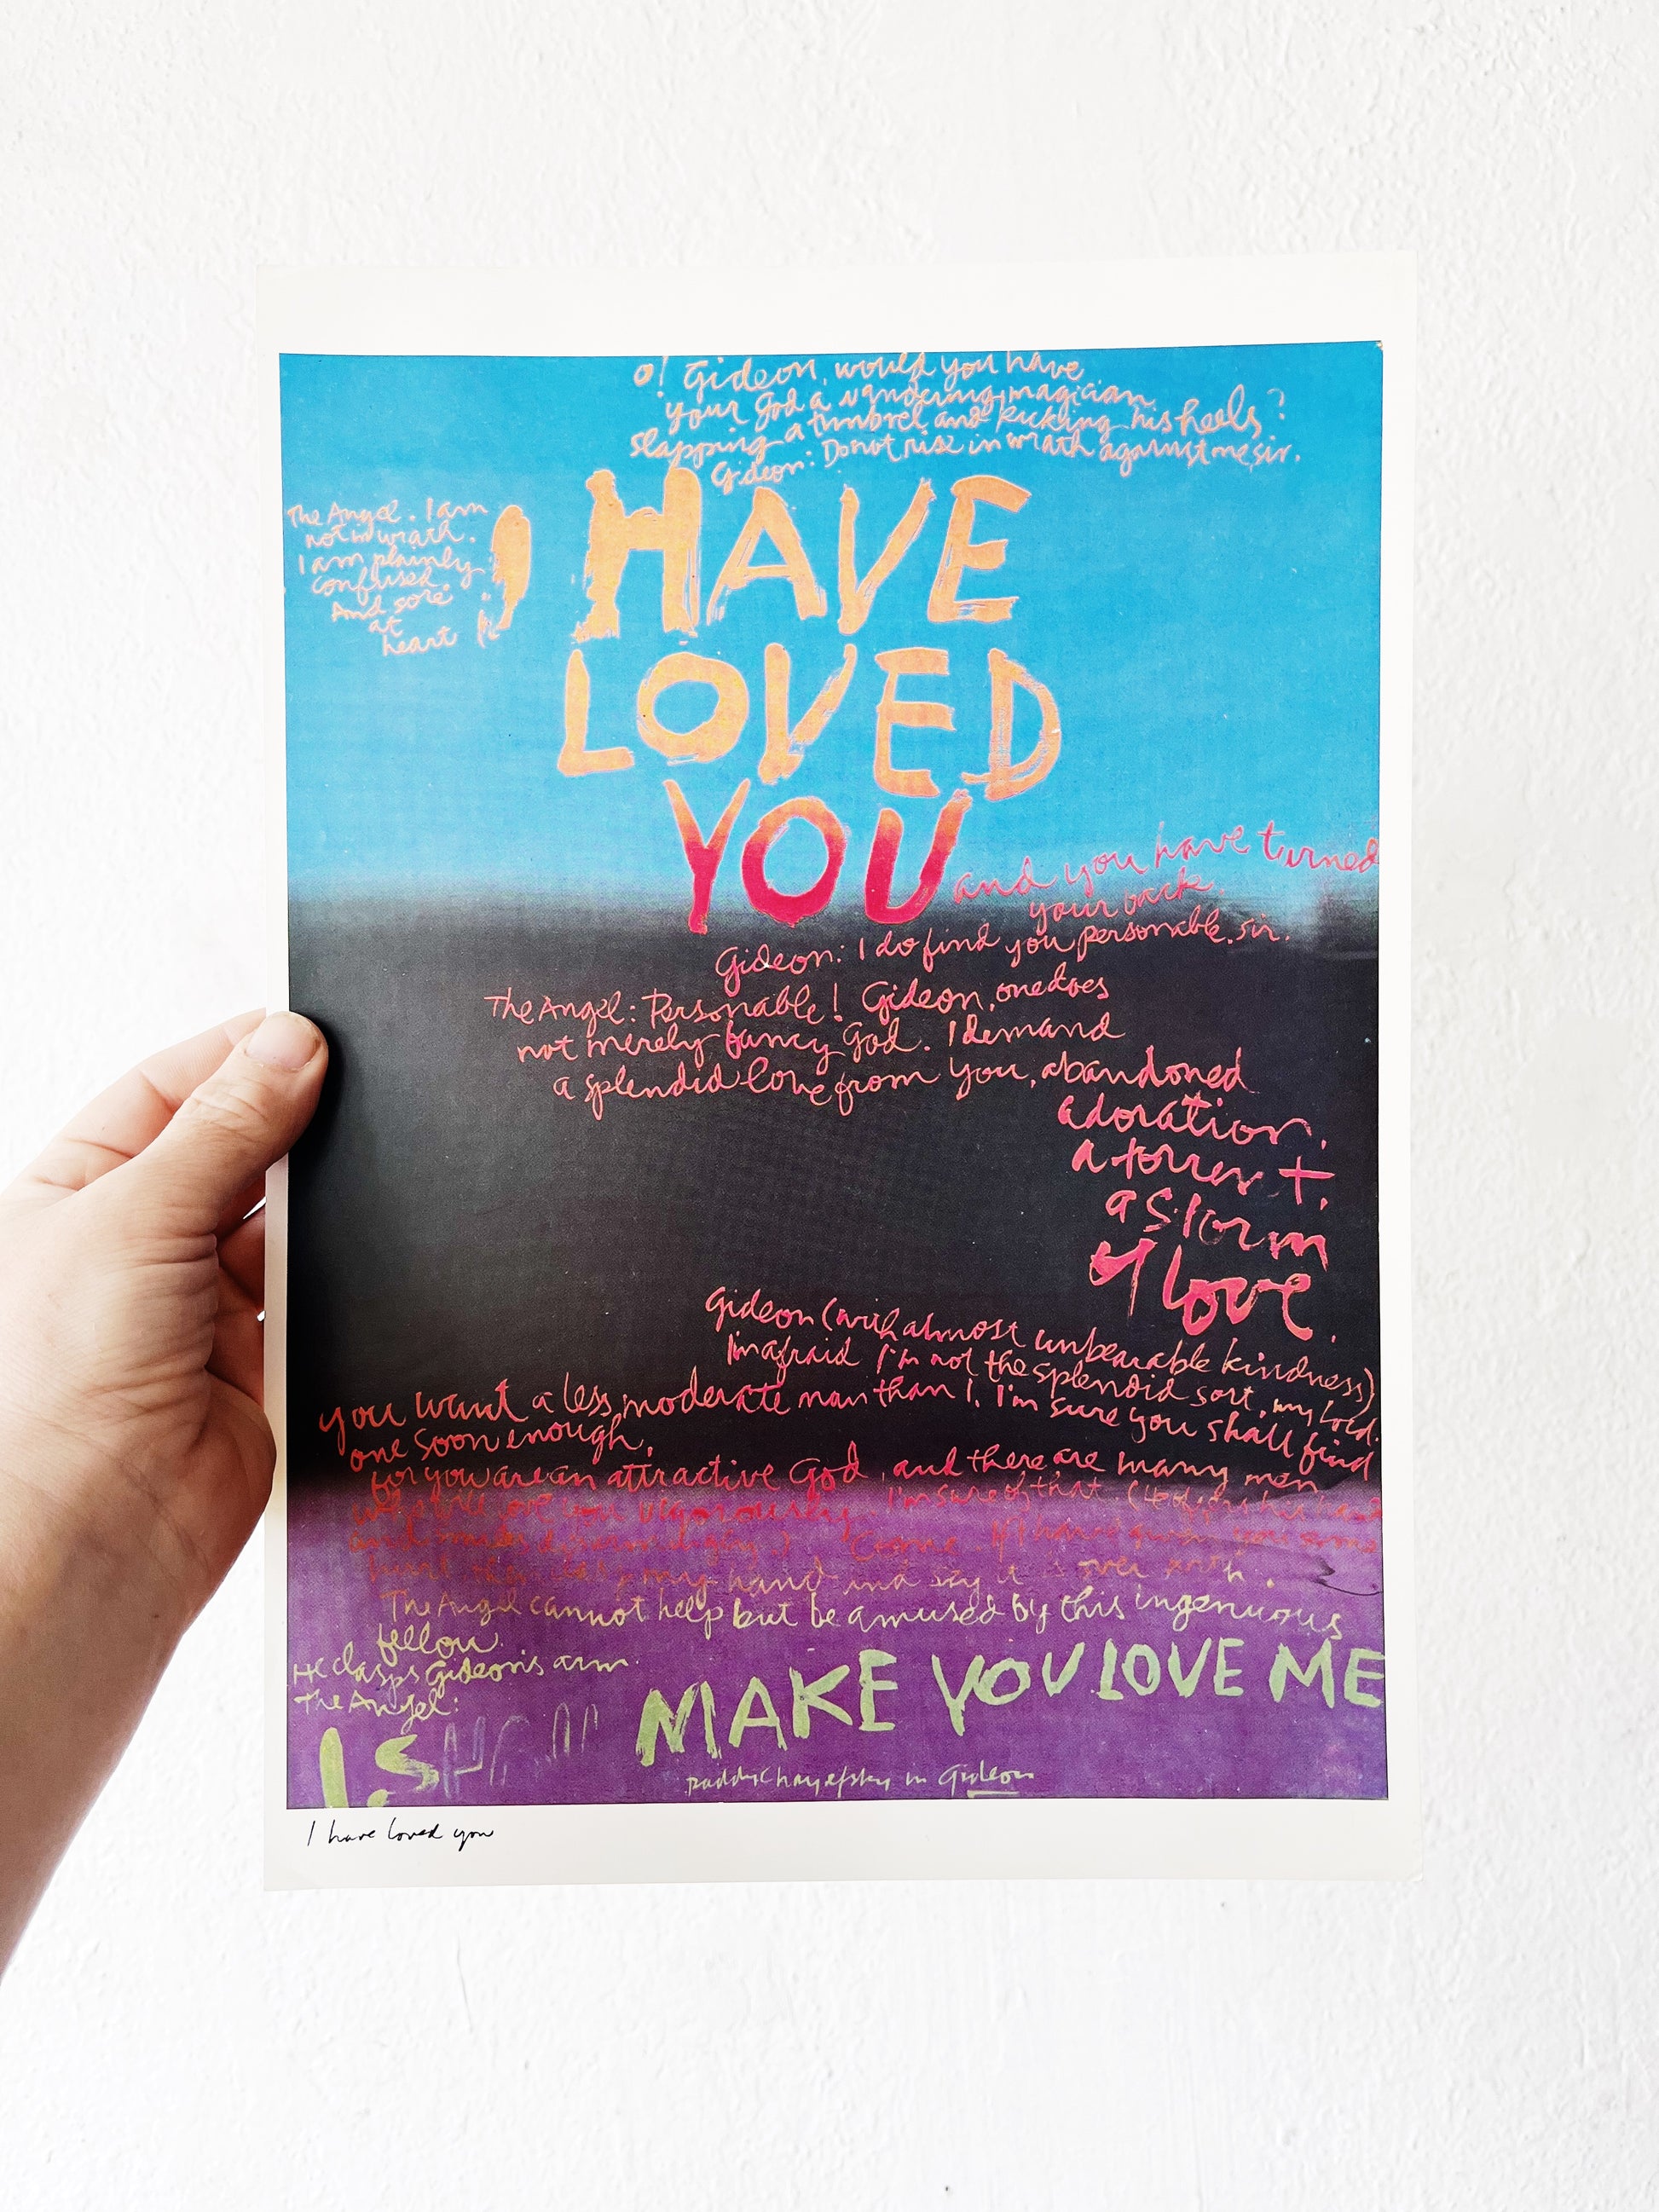 O! Gideon, would you have
your God a wandering magician,
slapping a timbrel and kicking his heels?
Gideon: Do not rise in wrath against me, sir.
The Angel. I am
not in wrath.
I am plainly
confused.
And sore
at
heart
I HAVE
LOVED
YOU
and you have turned
your back.
Gideon: I do find you personable, sir.
The Angel: Personable! Gideon, one does
not merely fancy God. I demand
a splendid love from you, abandoned
adoration,
a torrent,
a storm
of love.
Gideon (with almost unbearable kindness)
I'm afraid I'm not the splendid sort, my Lord.
you want a less moderate man than I. I'm sure you shall find
one soon enough,
for you are an attractive God, and there are many men
who will love you vigorously. I'm sure of that. (He offers his hand
and smiles disarmingly)
my hand and say it is over with.
The Angel cannot help but be amused by this ingenuous
fellow.
He clasps Gideon's arm.
The Angel:
I SHALL MAKE YOU LOVE ME
paddy chayefsky in Gideon
I have loved you